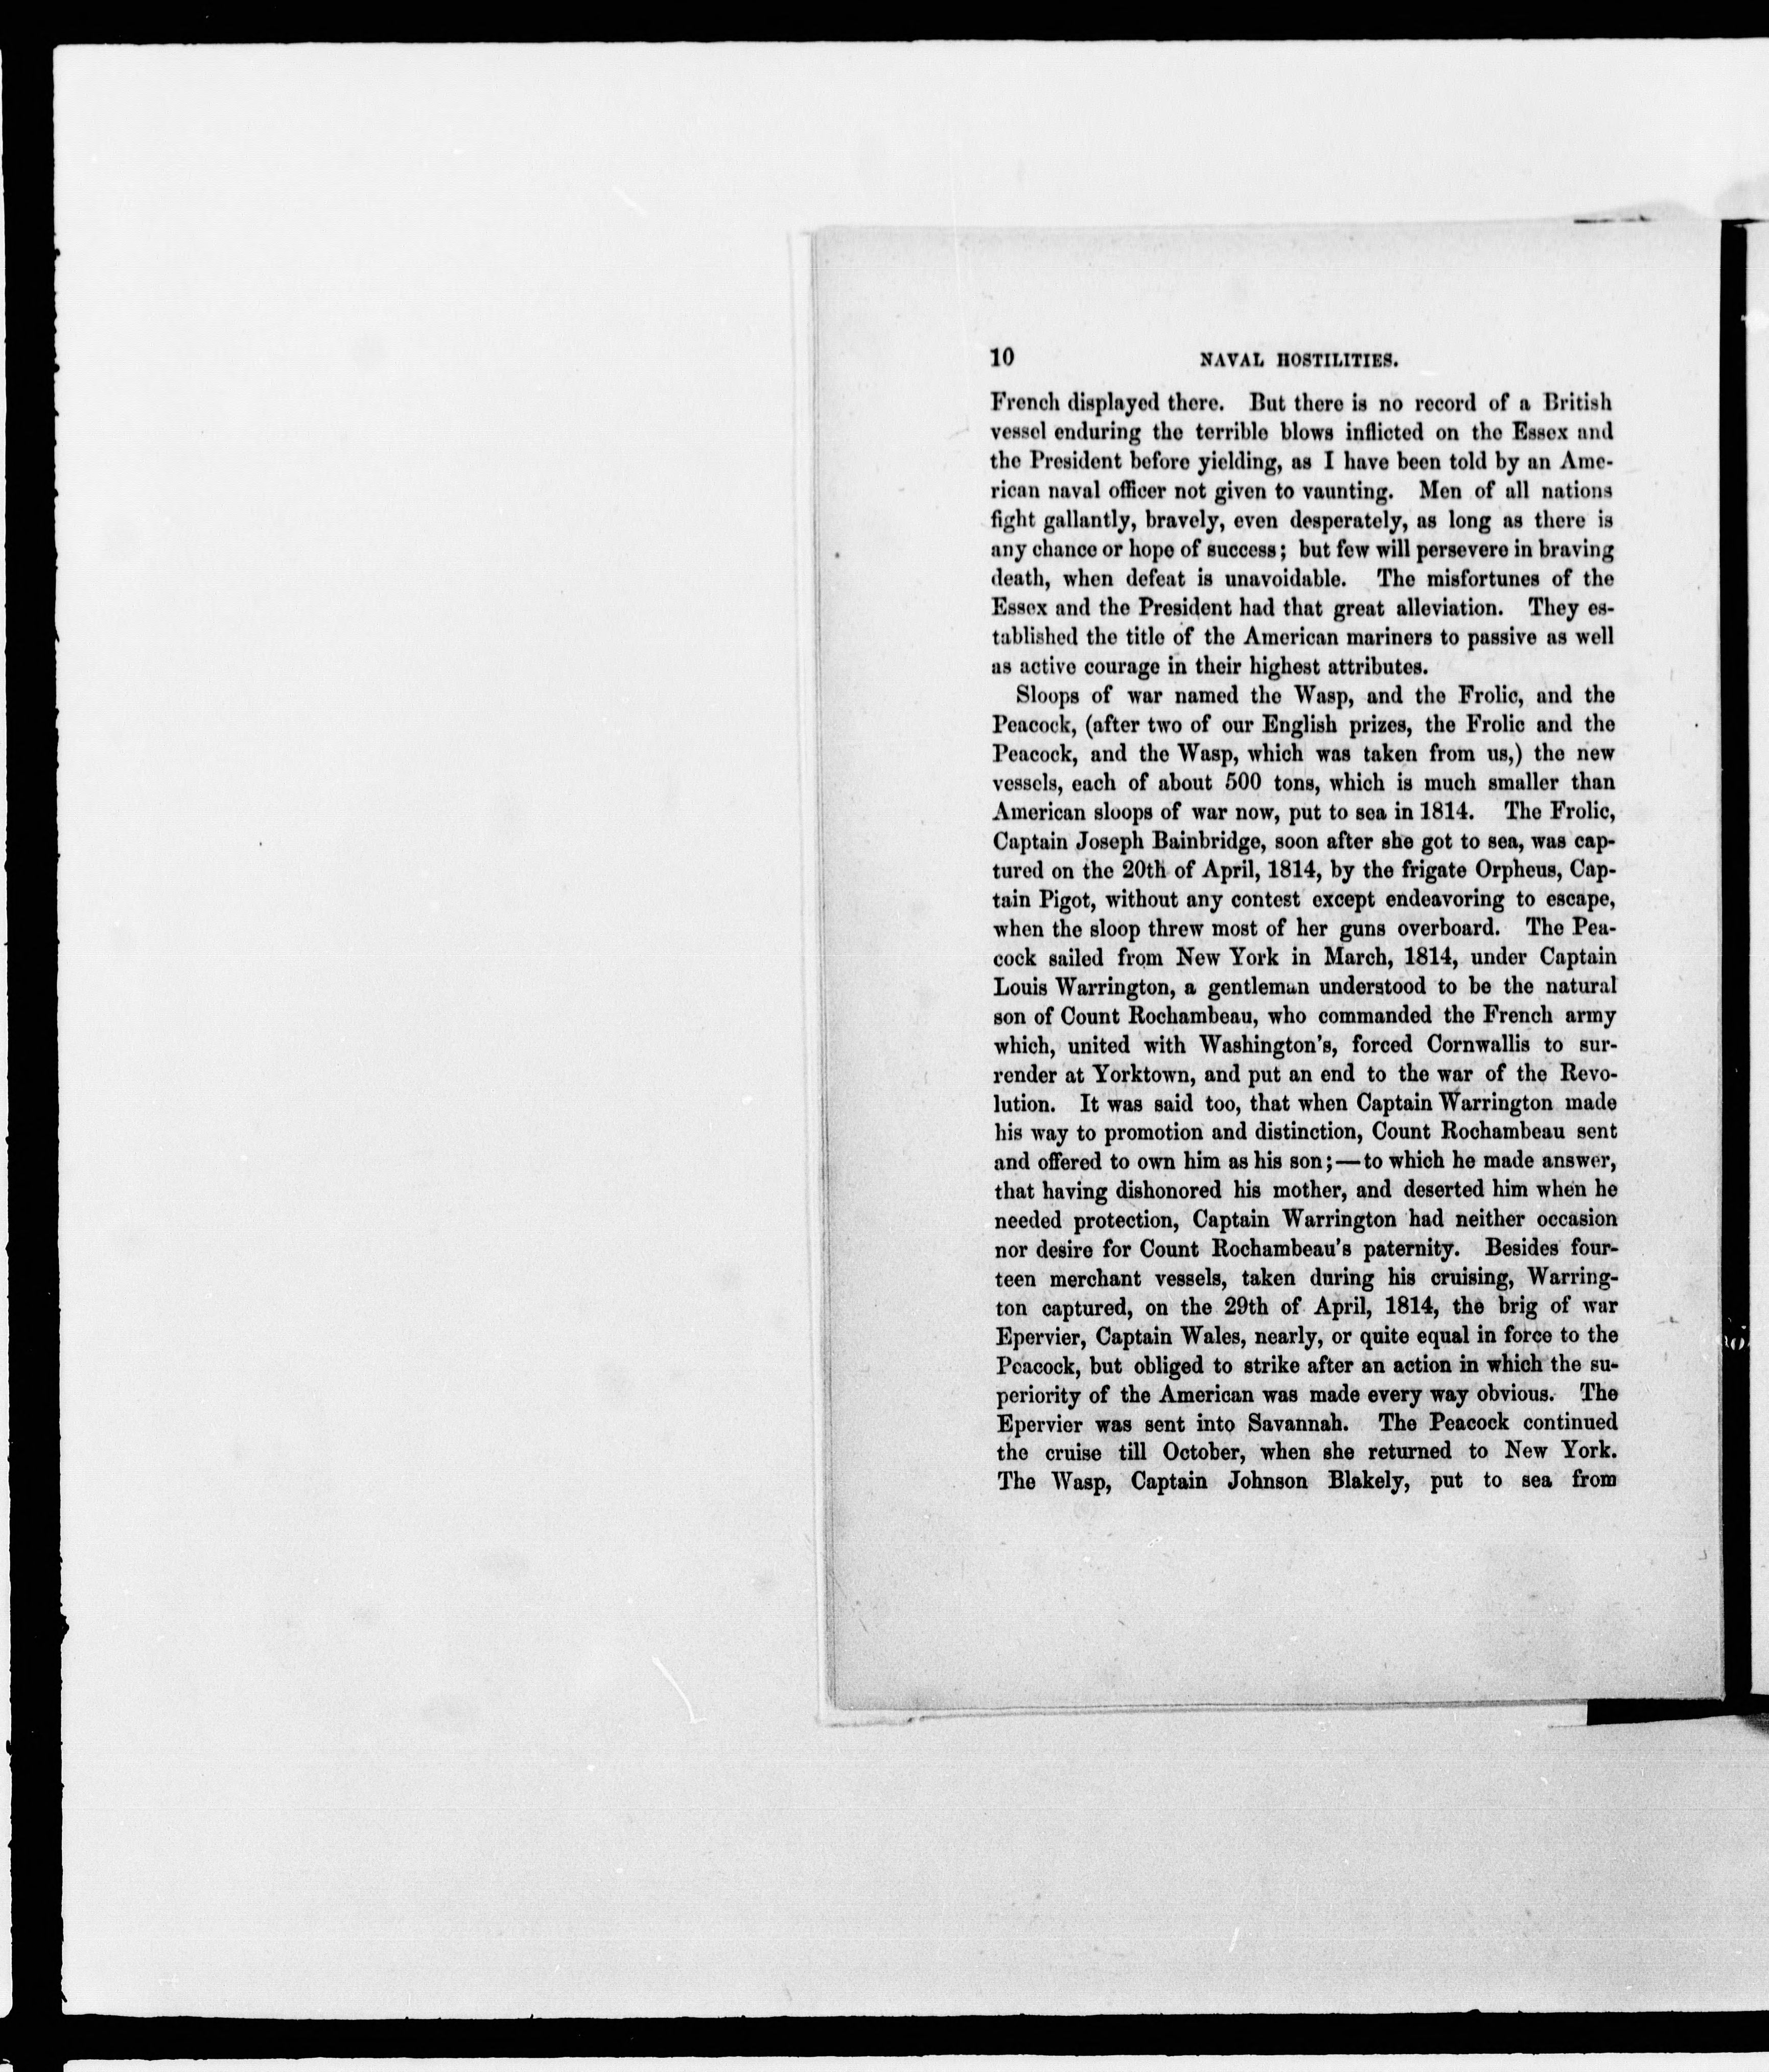 10 NAVAL HOSTILITIES.
French displayed there. But there is no record of a British
vessel enduring the terrible blows inflicted on the Essex and
the President before yielding, as I have been told by an Ame-
rican naval officer not given to vaunting. Men of all nations
fight gallantly, bravely, even desperately, as long as there is
any chance or hope of success; but few will persevere in braving
death, when defeat is unavoidable. The misfortunes of the
Essex and the President had that great alleviation. They es-
tablished the title of the American mariners to passive as well
as active courage in their highest attributes.
Sloops of war named the Wasp, and the Frolic, and the
Peacock, (after two of our English prizes, the Frolic and the
Peacock, and the Wasp, which was taken from us,) the new
vessels, each of about 500 tons, which is much smaller than
American sloops of war now, put to sea in 1814. The Frolic,
Captain Joseph Bainbridge, soon after she got to sea, was cap-
tured on the 20th of April, 1814, by the frigate Orpheus, Cap-
tain Pigot, without any contest except endeavoring to escape,
when the sloop threw most of her guns overboard. The Pea-
cock sailed from New York in March, 1814, under Captain
Louis Warrington, a gentleman understood to be the natural
son of Count Rochambeau, who commanded the French army
which, united with Washington's, forced Cornwallis to sur-
render at Yorktown, and put an end to the war of the Revo-
lution. It was said too, that when Captain Warrington made
his way to promotion and distinction, Count Rochambeau sent
and offered to own him as his son;—to which he made answer,
that having dishonored his mother, and deserted him when he
needed protection, Captain Warrington had neither occasion
nor desire for Count Rochambeau's paternity. Besides four-
teen merchant vessels, taken during his cruising, Warring-
ton captured, on the 29th of April, 1814, the brig of war
Epervier, Captain Wales, nearly, or quite equal in force to the
Peacock, but obliged to strike after an action in which the su-
periority of the American was made every way obvious. The
Epervier was sent into Savannah. The Peacock continued
the cruise till October, when she returned to New York.
The Wasp, Captain Johnson Blakely, put to sea from